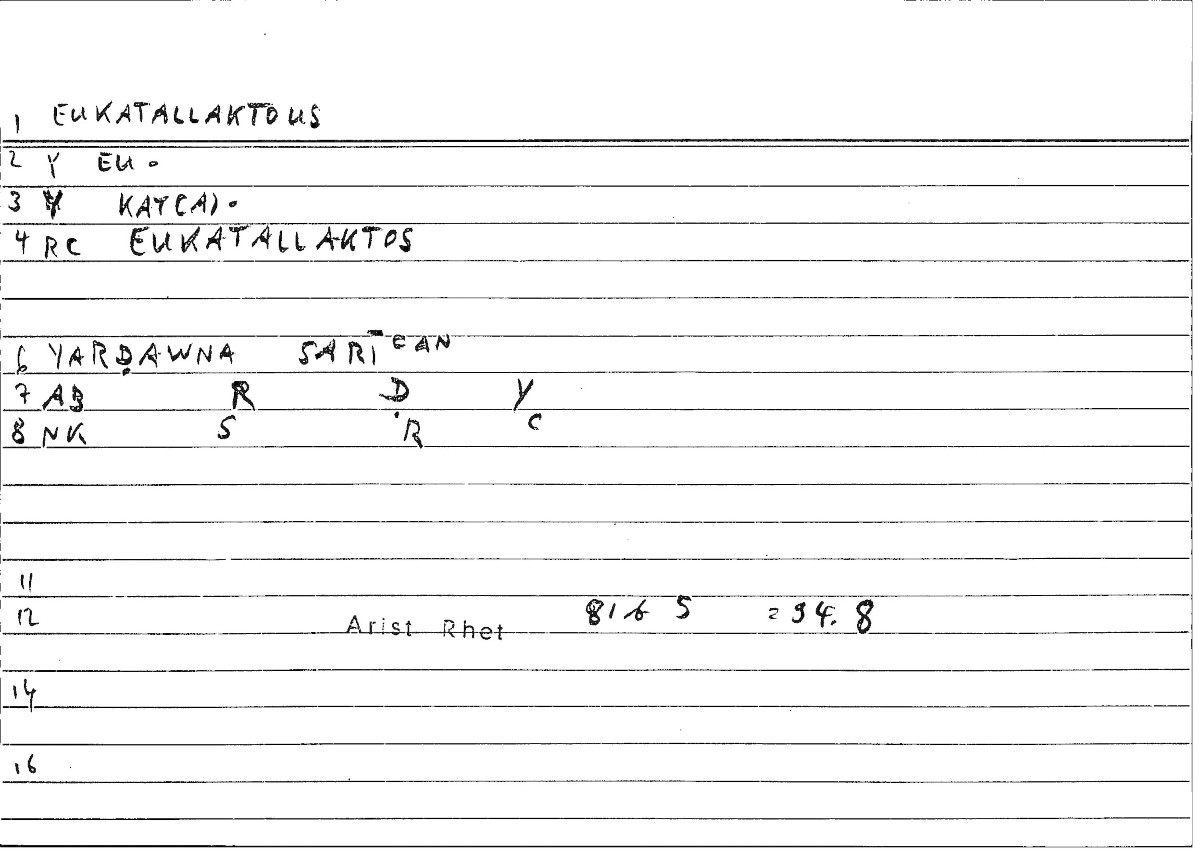 1 EUKATALLAKTOUS
2 Y EU.
3 Y KAT(A).
4 RC EUKATALLAKTOS
6 YARḌAWNA SARĪcAN
7 AB R Ḍ Y
8 NK S R C
11
12 Arist Rhet 81b 5 = 94.8
14
16